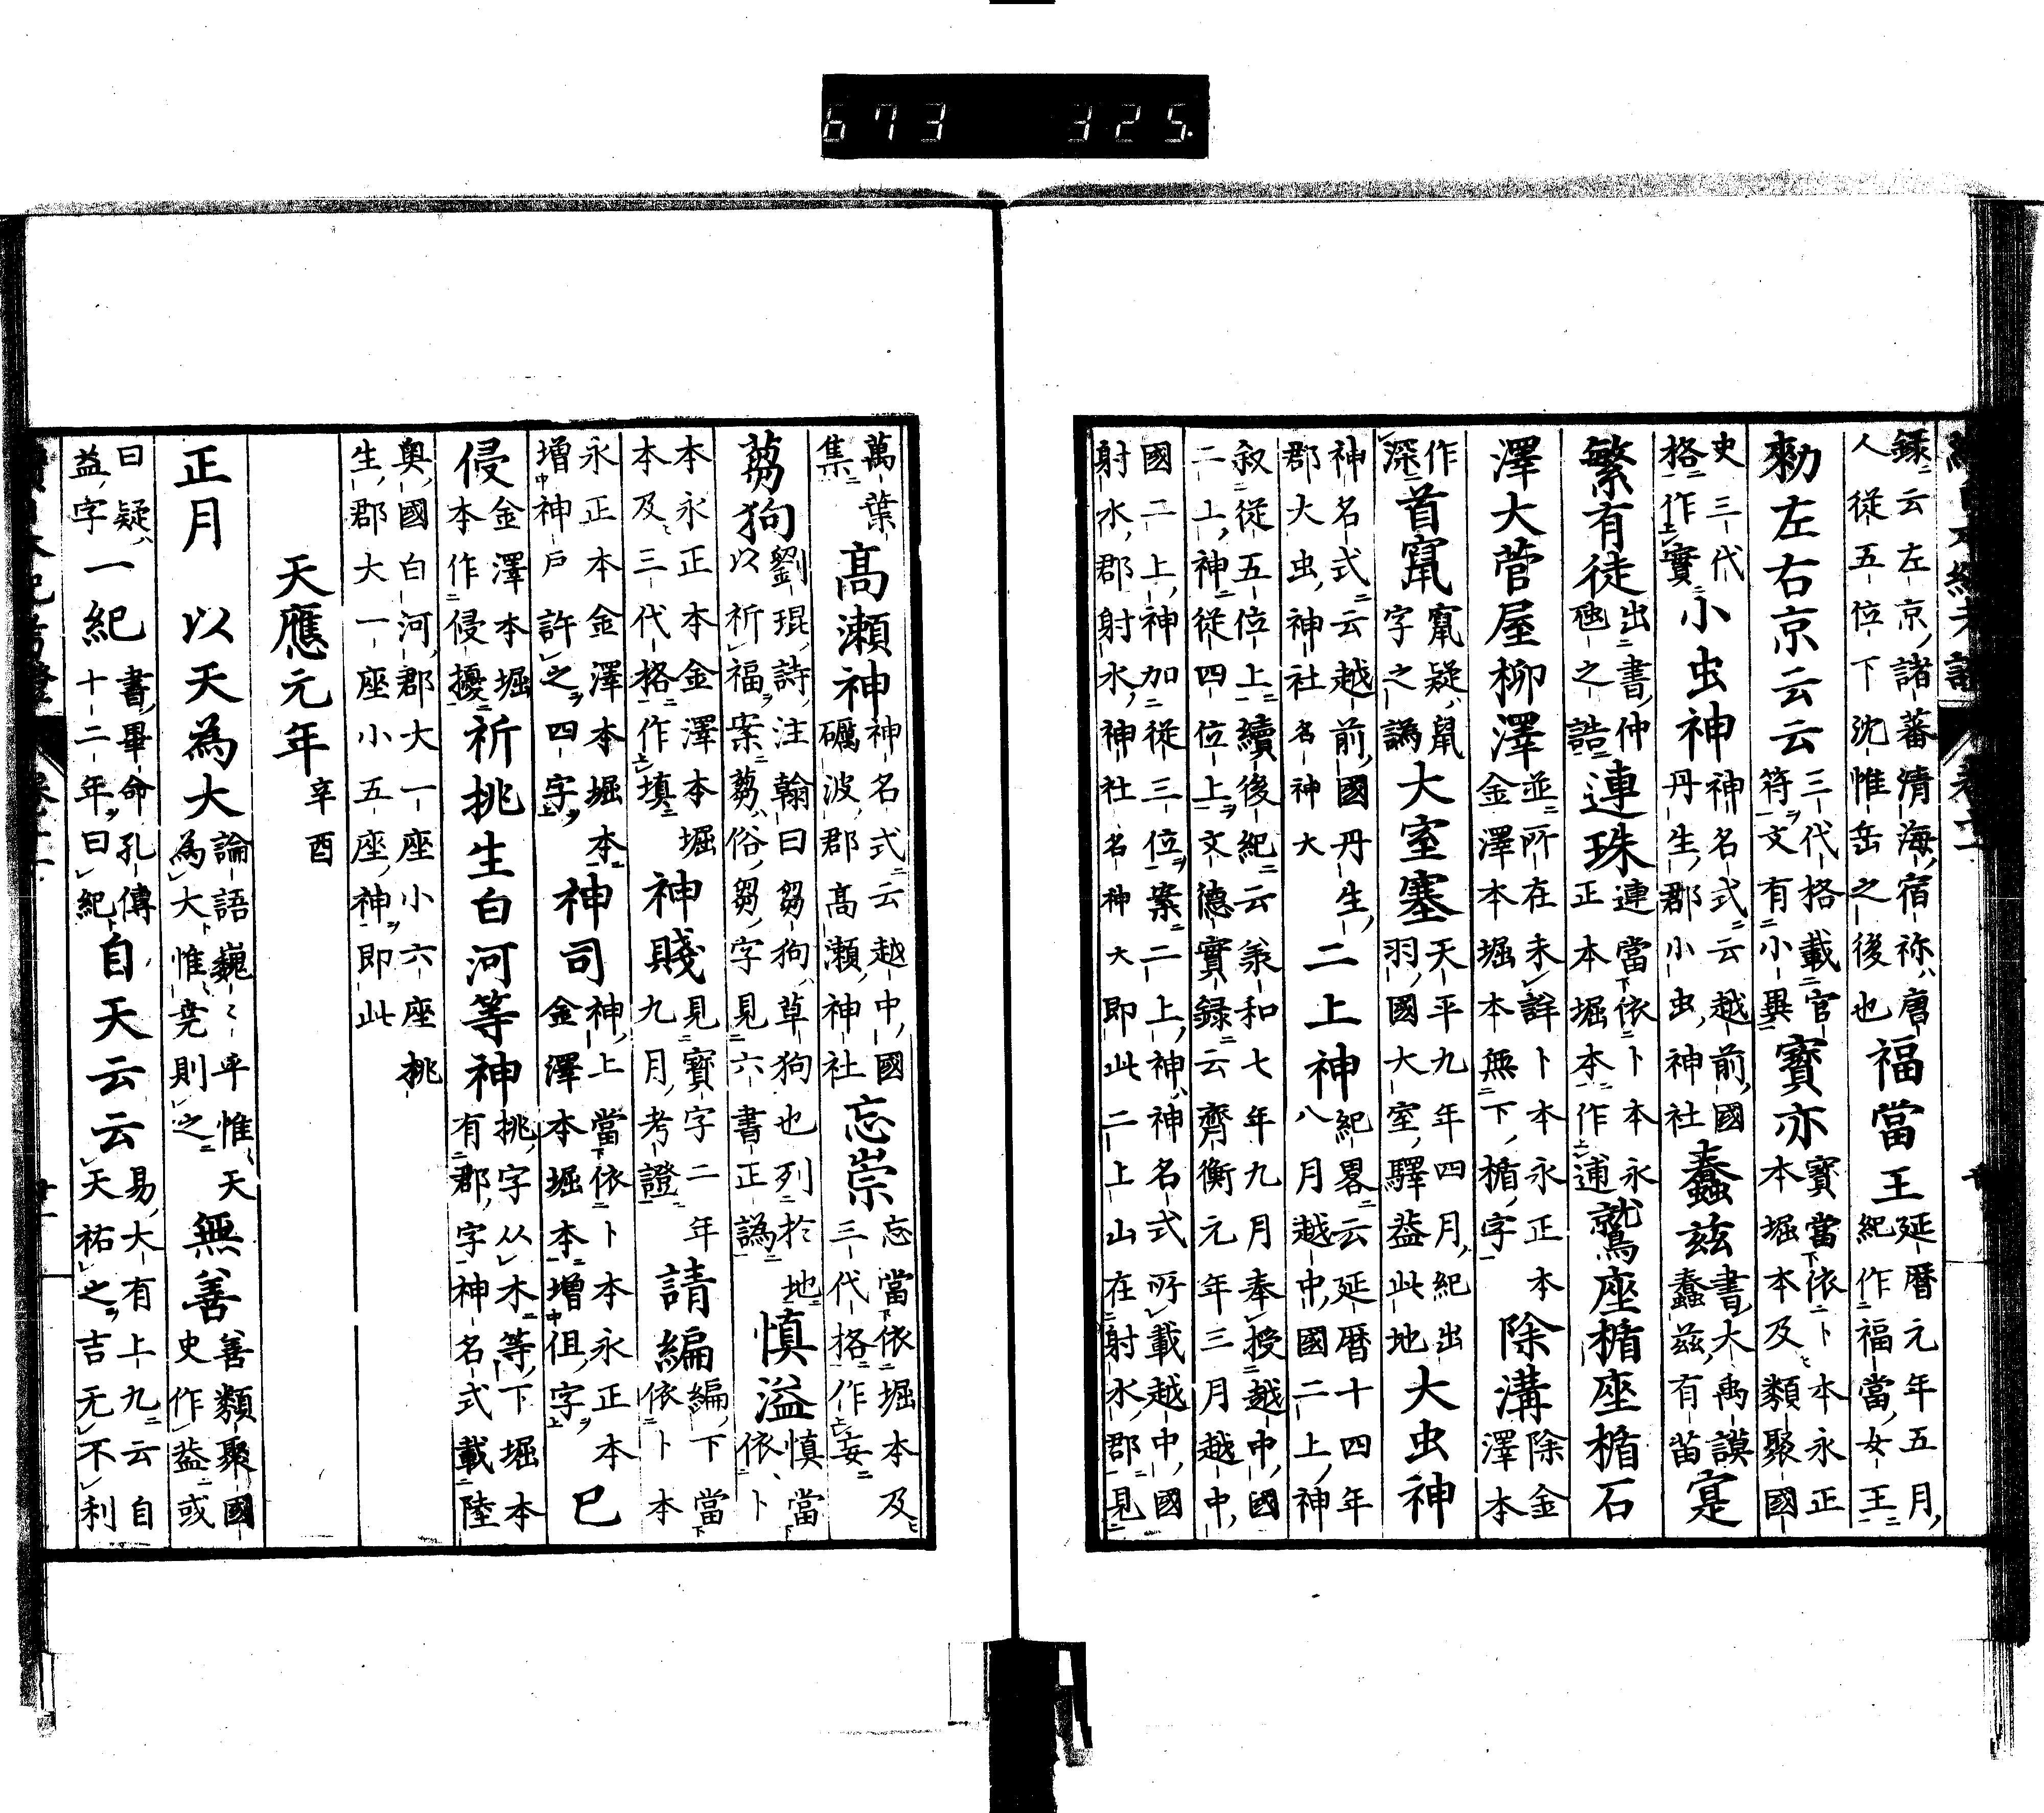 673 325.
録云左京諸蕃清海宿祢唐人從五位下沈惟岳之後也 福當王 延曆元年五月紀作福當女王
勅左右京云云 三代格載官符文有小異 寶亦 寶當依卜本永正本堀本及類聚國
史三代格作實 小虫神 神名式云越前國丹生郡小虫神社 蠢茲 書大禹謨蠢茲有苗 寔
繁有徒 出書仲虺之誥 連珠 連當依卜本永正本堀本作逋 鷲座楯座楯石
澤大菅屋柳澤 並所在未詳卜本永正本金澤本堀本無下楯字 除溝 除金澤本
作深 首竄 竄疑鼠字之譌 大室塞 天平九年四月紀出羽國大室驛益此地 大虫神
神名式云越前國丹生郡大虫神社名神大 二上神 紀畧云延曆十四年八月越中國二上神
叙從五位上續後紀云羕和七年九月奉授越中國二上神從四位上文德實録云齊衡元年三月越中
國二上神加從三位案二上神神名式所載越中國射水郡射水神社名神大即此二上山在射水郡見
萬葉集 高瀬神 神名式云越中國礪波郡高瀬神社 忘崇 忘當依堀本及三代格作妄
蒭狗 劉琨詩注翰曰芻狗草狗也列於地以祈福案蒭俗芻字見六書正譌 慎溢 慎當依卜
本永正本金澤本堀本及三代格作填 神賤 見寶字二年九月考證 請編 編下當依卜本
永正本金澤本堀本增神戶許之四字 神司 神上當依卜本永正本金澤本堀本增但字 已
侵 金澤本堀本作侵擾 祈挑生白河等神 挑字从木等下堀本有郡字神名式載陸
奥國白河郡大一座小六座挑生郡大一座小五座神即此
天應元年 辛酉
正月 以天為大 論語巍〻乎惟天為大惟堯則之 無善 善類聚國史作益或
曰疑益字 一紀 書畢命孔傳十二年曰紀 自天云云 易大有上九云自天祐之吉无不利